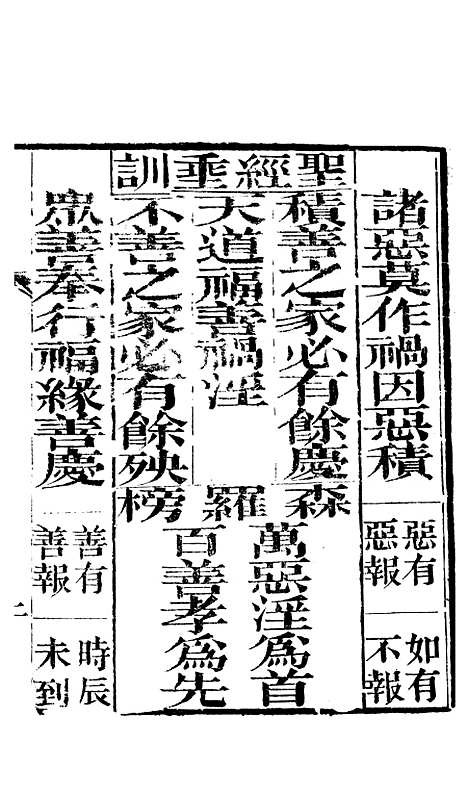 諸惡莫作禍因惡積
惡有
惡報
如有
不報
聖經垂訓
積善之家必有餘慶
天道福善禍淫
不善之家必有餘殃
森羅榜
萬惡淫爲首
百善孝爲先
衆善奉行福緣善慶
善有
善報
時辰
未到